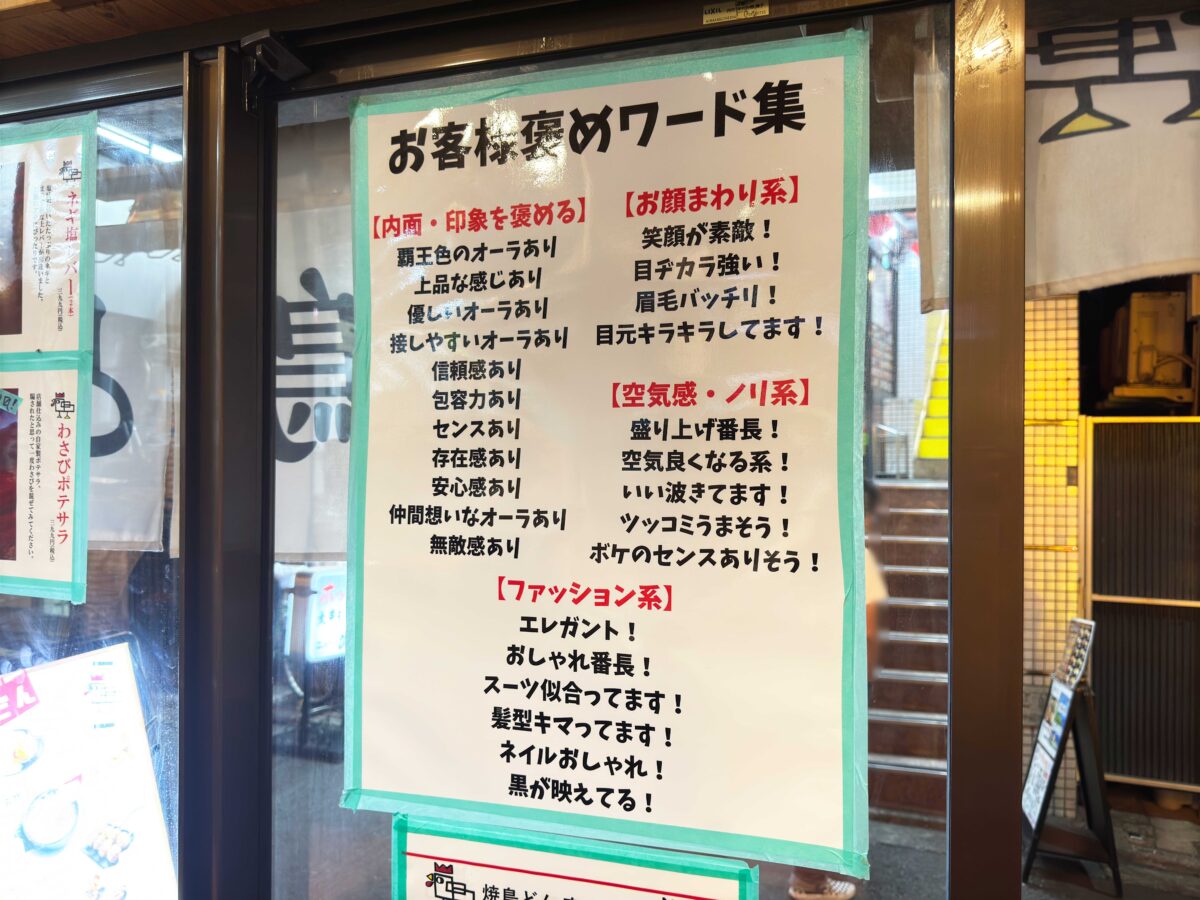 お客様褒めワード集
【内面・印象を褒める】
覇王色のオーラあり
上品な感じあり
優しいオーラあり
接しやすいオーラあり
信頼感あり
包容力あり
センスあり
存在感あり
安心感あり
仲間想いなオーラあり
無敵感あり
【お顔まわり系】
笑顔が素敵！
目ヂカラ強い！
眉毛バッチリ！
目元キラキラしてます！
【空気感・ノリ系】
盛り上げ番長！
空気良くなる系！
いい波きてます！
ツッコミうまそう！
ボケのセンスありそう！
【ファッション系】
エレガント！
おしゃれ番長！
スーツ似合ってます！
髪型キマってます！
ネイルおしゃれ！
黒が映えてる！
ネギ塩レバー(2本)
三九九円(税込)
わさびポテサラ
店舗仕込みの自家製ポテサラ。
騙されたと思って一度わさびを混ぜてみてください。
三九九円(税込)
鳥
LIXIL
焼鳥どん